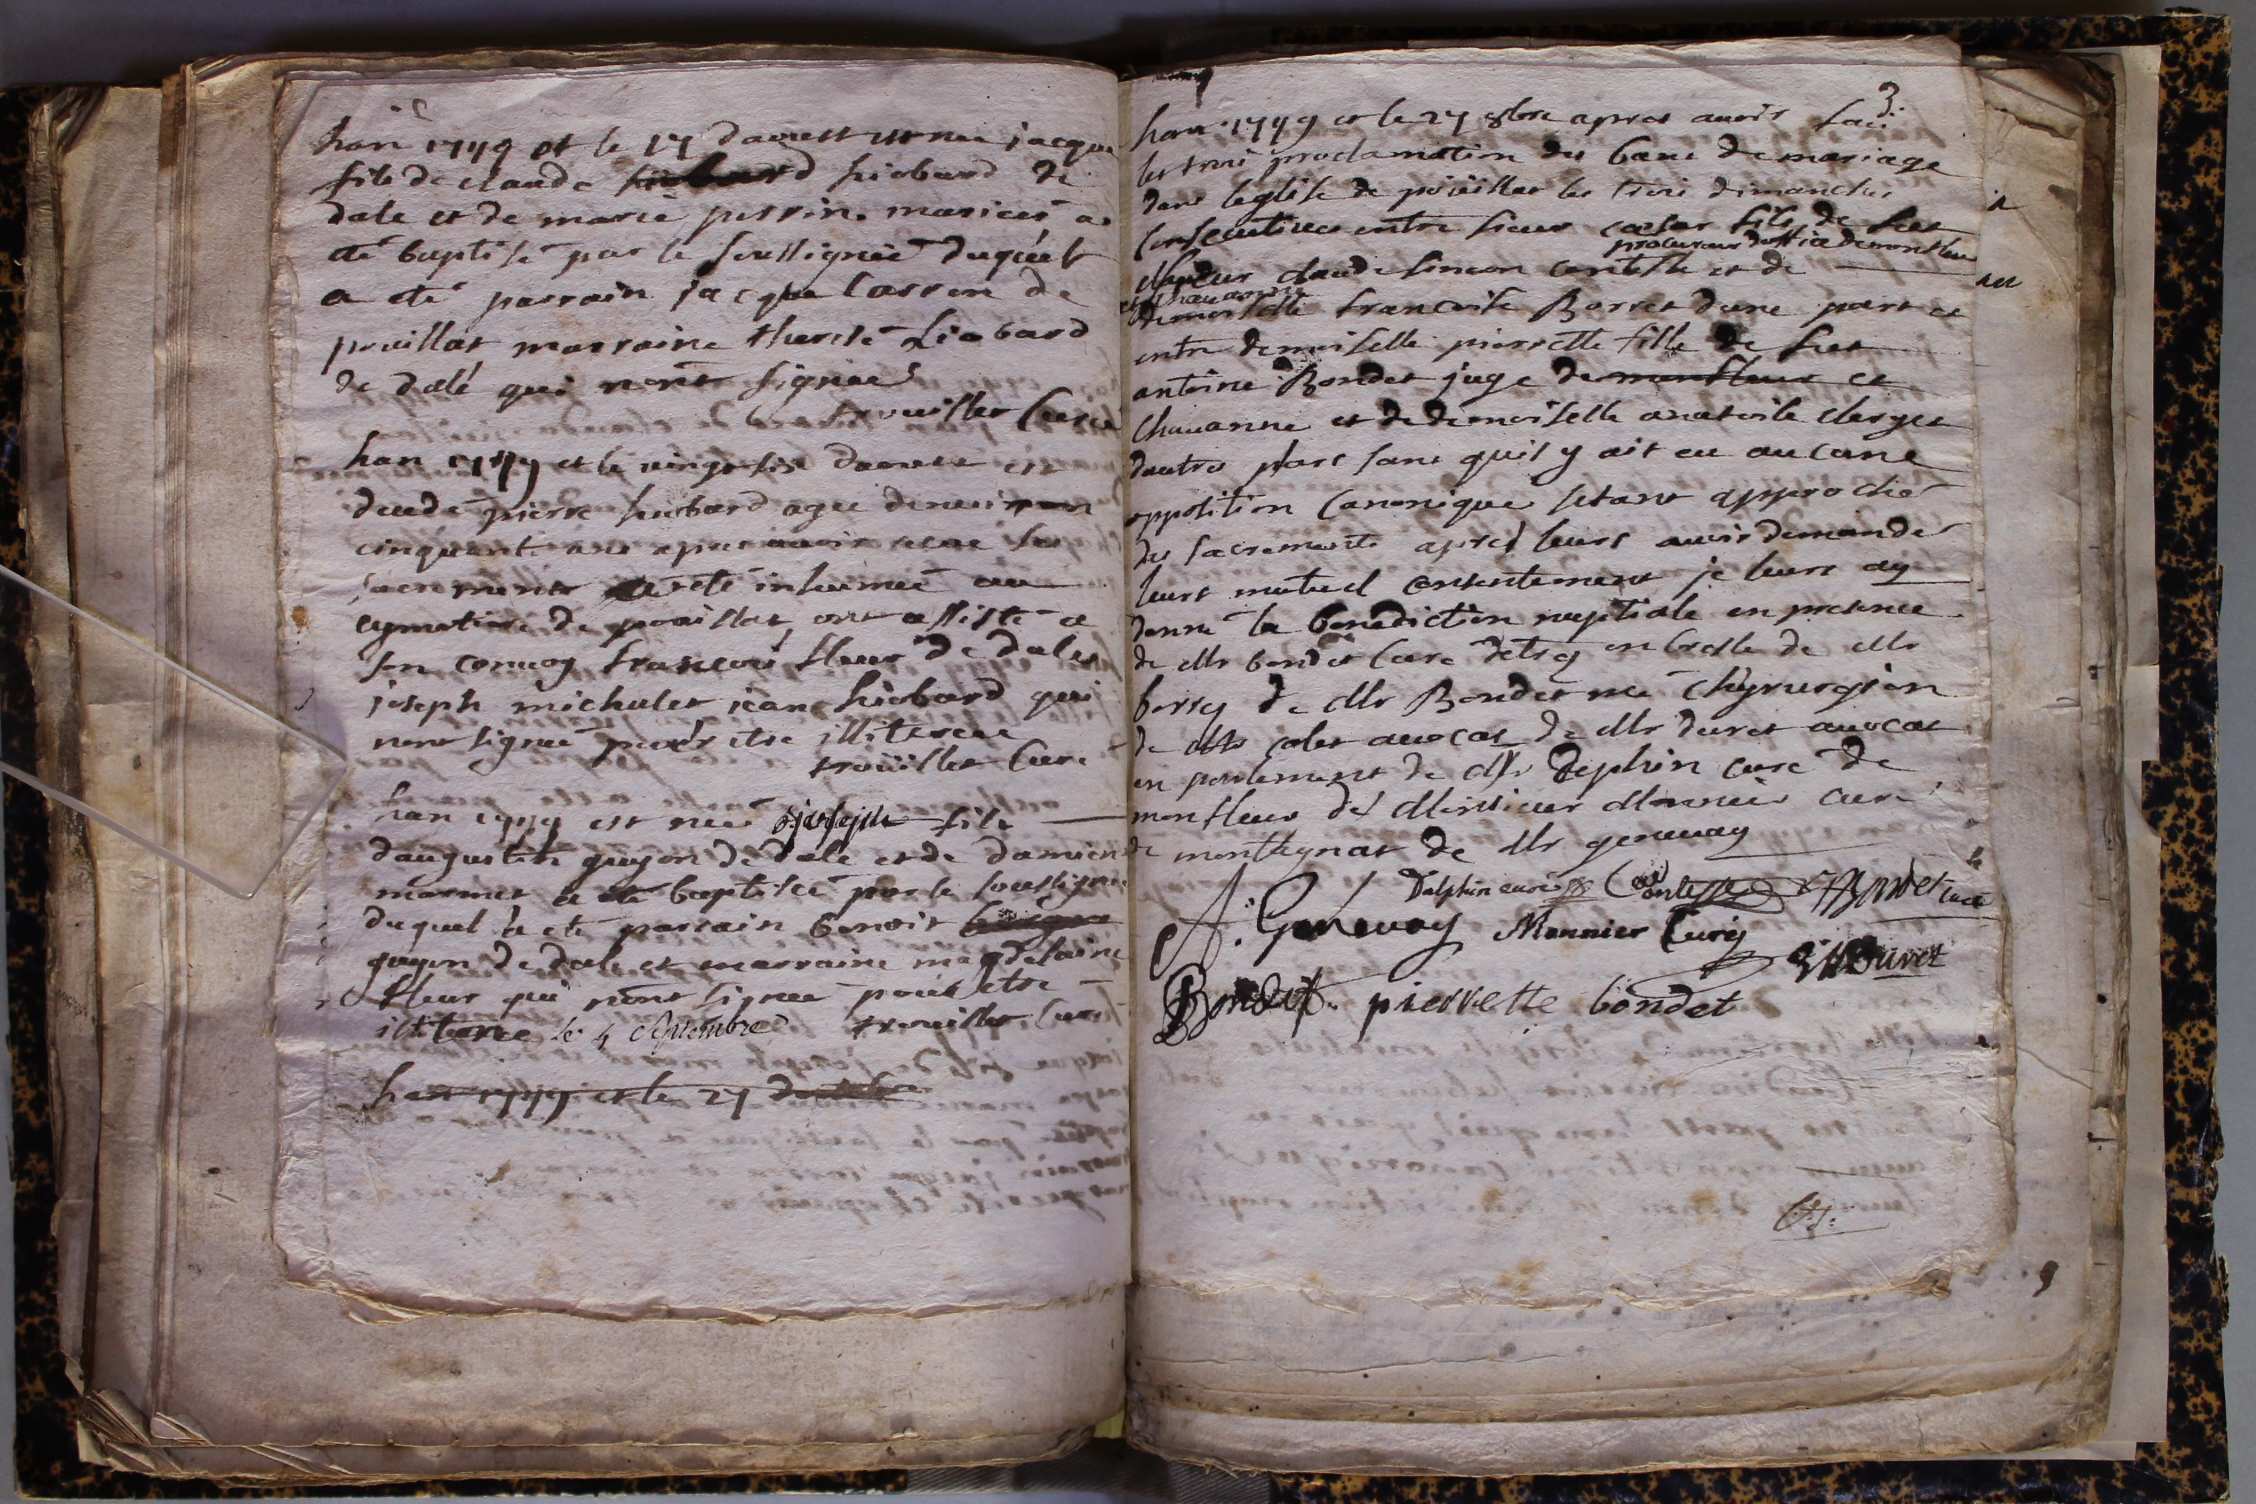 han 1749 et le 17 daoust est nee jacque
fils de claude hiobard de
dale et de marie perrin maries a
eté baptisé par le soussignée duquél
a eté parrain jacque Carron de
pouillat marraine therese Liobard
de dalé qui nont signée
trouillet Curé
han 1749 et le vingt six daoust est
decede pierre hiobard agee denviron
cinquant ans apres avoir recue les
sacrements a eté inhumée au
cymetiere de pouillat ont assisté a
son convoy francois fleur de dales
joseph michalet jean hiobard qui
nont signée pour etre illiteree
trouillet Curé
han 1749 est neé joseph fils
daugustin guyon de dale et de damien
marmet a eté baptiseé par le soussigné
duquel a eté parrain benoit
guyon de dale et marraine magdelaine
fleur qui nont signée pour etre
illiteree le 4 Septembre trouillet Curé
han 1749 et le 27 doctobre
3.
han 1749 et le 27 8bre apres avoir fait
les trois proclamation des banc de mariage
dans leglise de poüillat les trois dimanches
Consecutives entre sieur cæsar fils de feu
procureur doffice de monfleur
Monsieur claude simeon contesse et de
et chavanne
demoiselle francoise Borret dune part et
entre demoiselle pierrette fille de feu
antoine Bondet juge de monfleur et
Chavanne et de demoiselle anatoile clerget
dautre part sans quil y ait eu aucune
opposition Canonique setant approché
des sacrements apres leurs avoir demandé
leurs mutuel consentement je leurs ay
donné la benediction nuptiale en presence
de Mr bondet Curé detrey en bresse de Mr
borrey de Mr Bondet me chyrurgien
de Mr colet avocat de Mr duret avocat
en parlement de Mr Dephin curé de
monfleur de Monsieur Monnier curé
de montagnat de Mr genevay
Delphin curé Contesse Bondet curé
A. Genevay Monnier Curé
Duret
Bondet pierrette bondet